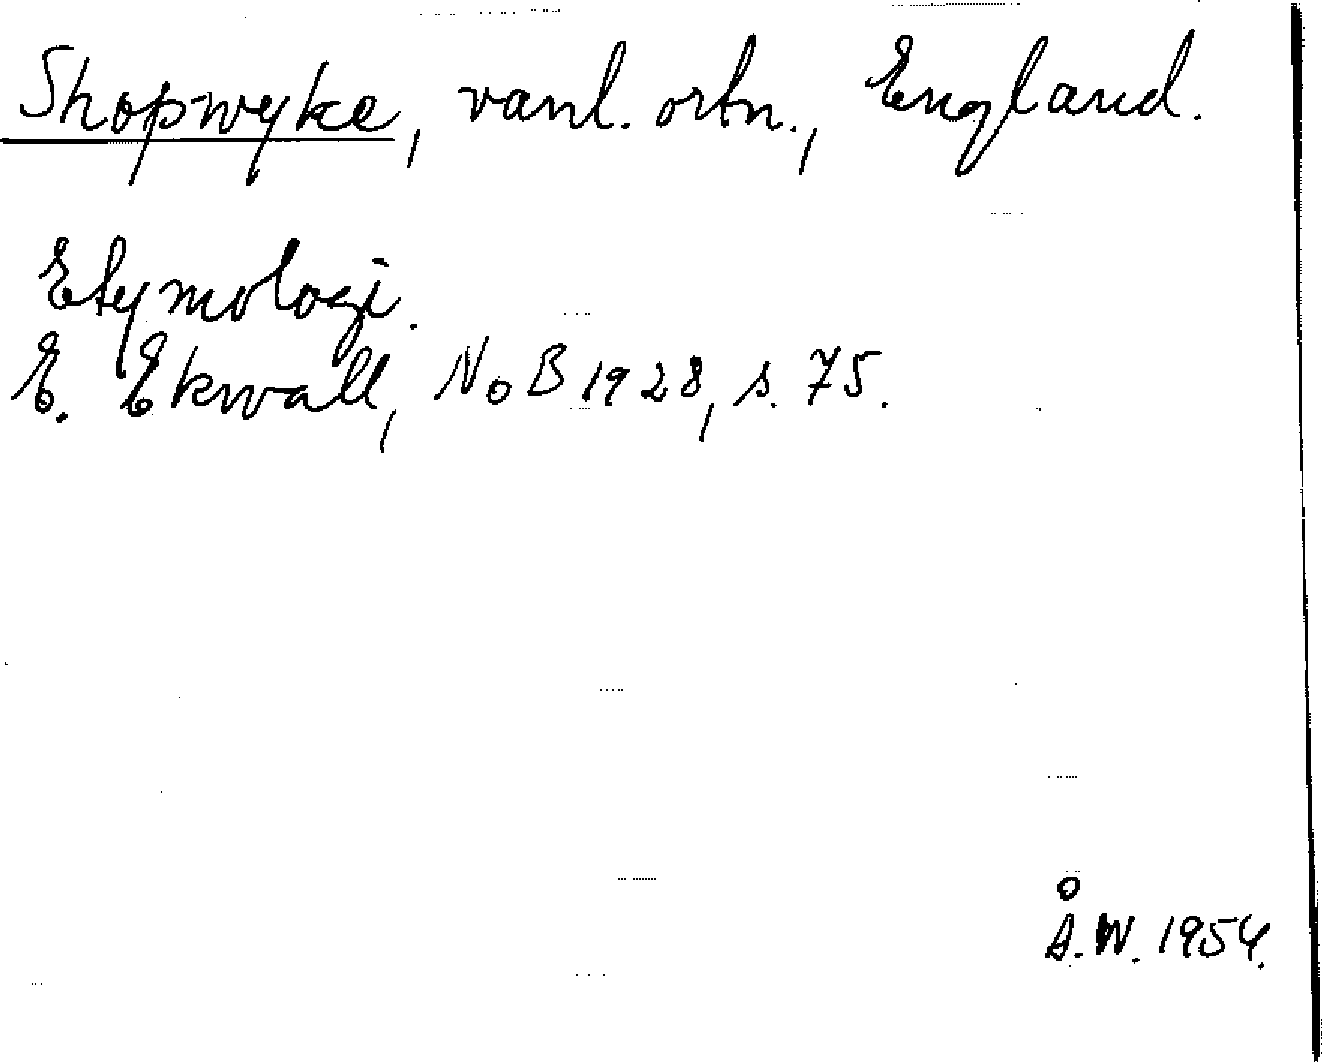 Shopwyke, vanl. ortn., England.
Etymologi.
E. Ekwall, NoB 1928, s. 75.
Å.W. 1954.